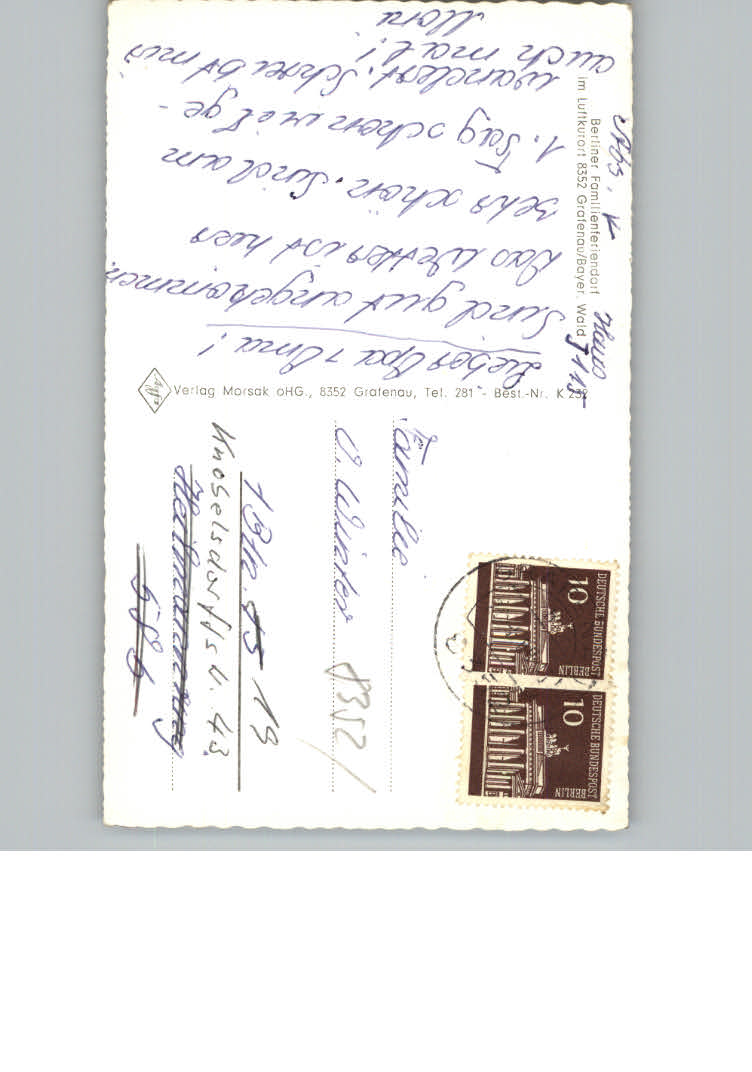 Berliner Familienferiendorf
im Luftkurort 8352 Grafenau/Bayer. Wald
Haus
J 115
Lieber Opa + Oma!
Sind gut angekommen
Das Wetter ist hier
sehr schön. Sind am
1. Tag schon viel ge-
wandert. Schreibt mir
auch mal!
Verlag Morsak oHG., 8352 Grafenau, Tel. 281 - Best.-Nr. K
Agfa
DEUTSCHE BUNDESPOST
10
BERLIN
DEUTSCHE BUNDESPOST
10
BERLIN
Familie
O. Winter
8352
1 Bln. 19
Knobelsdorffstr. 43